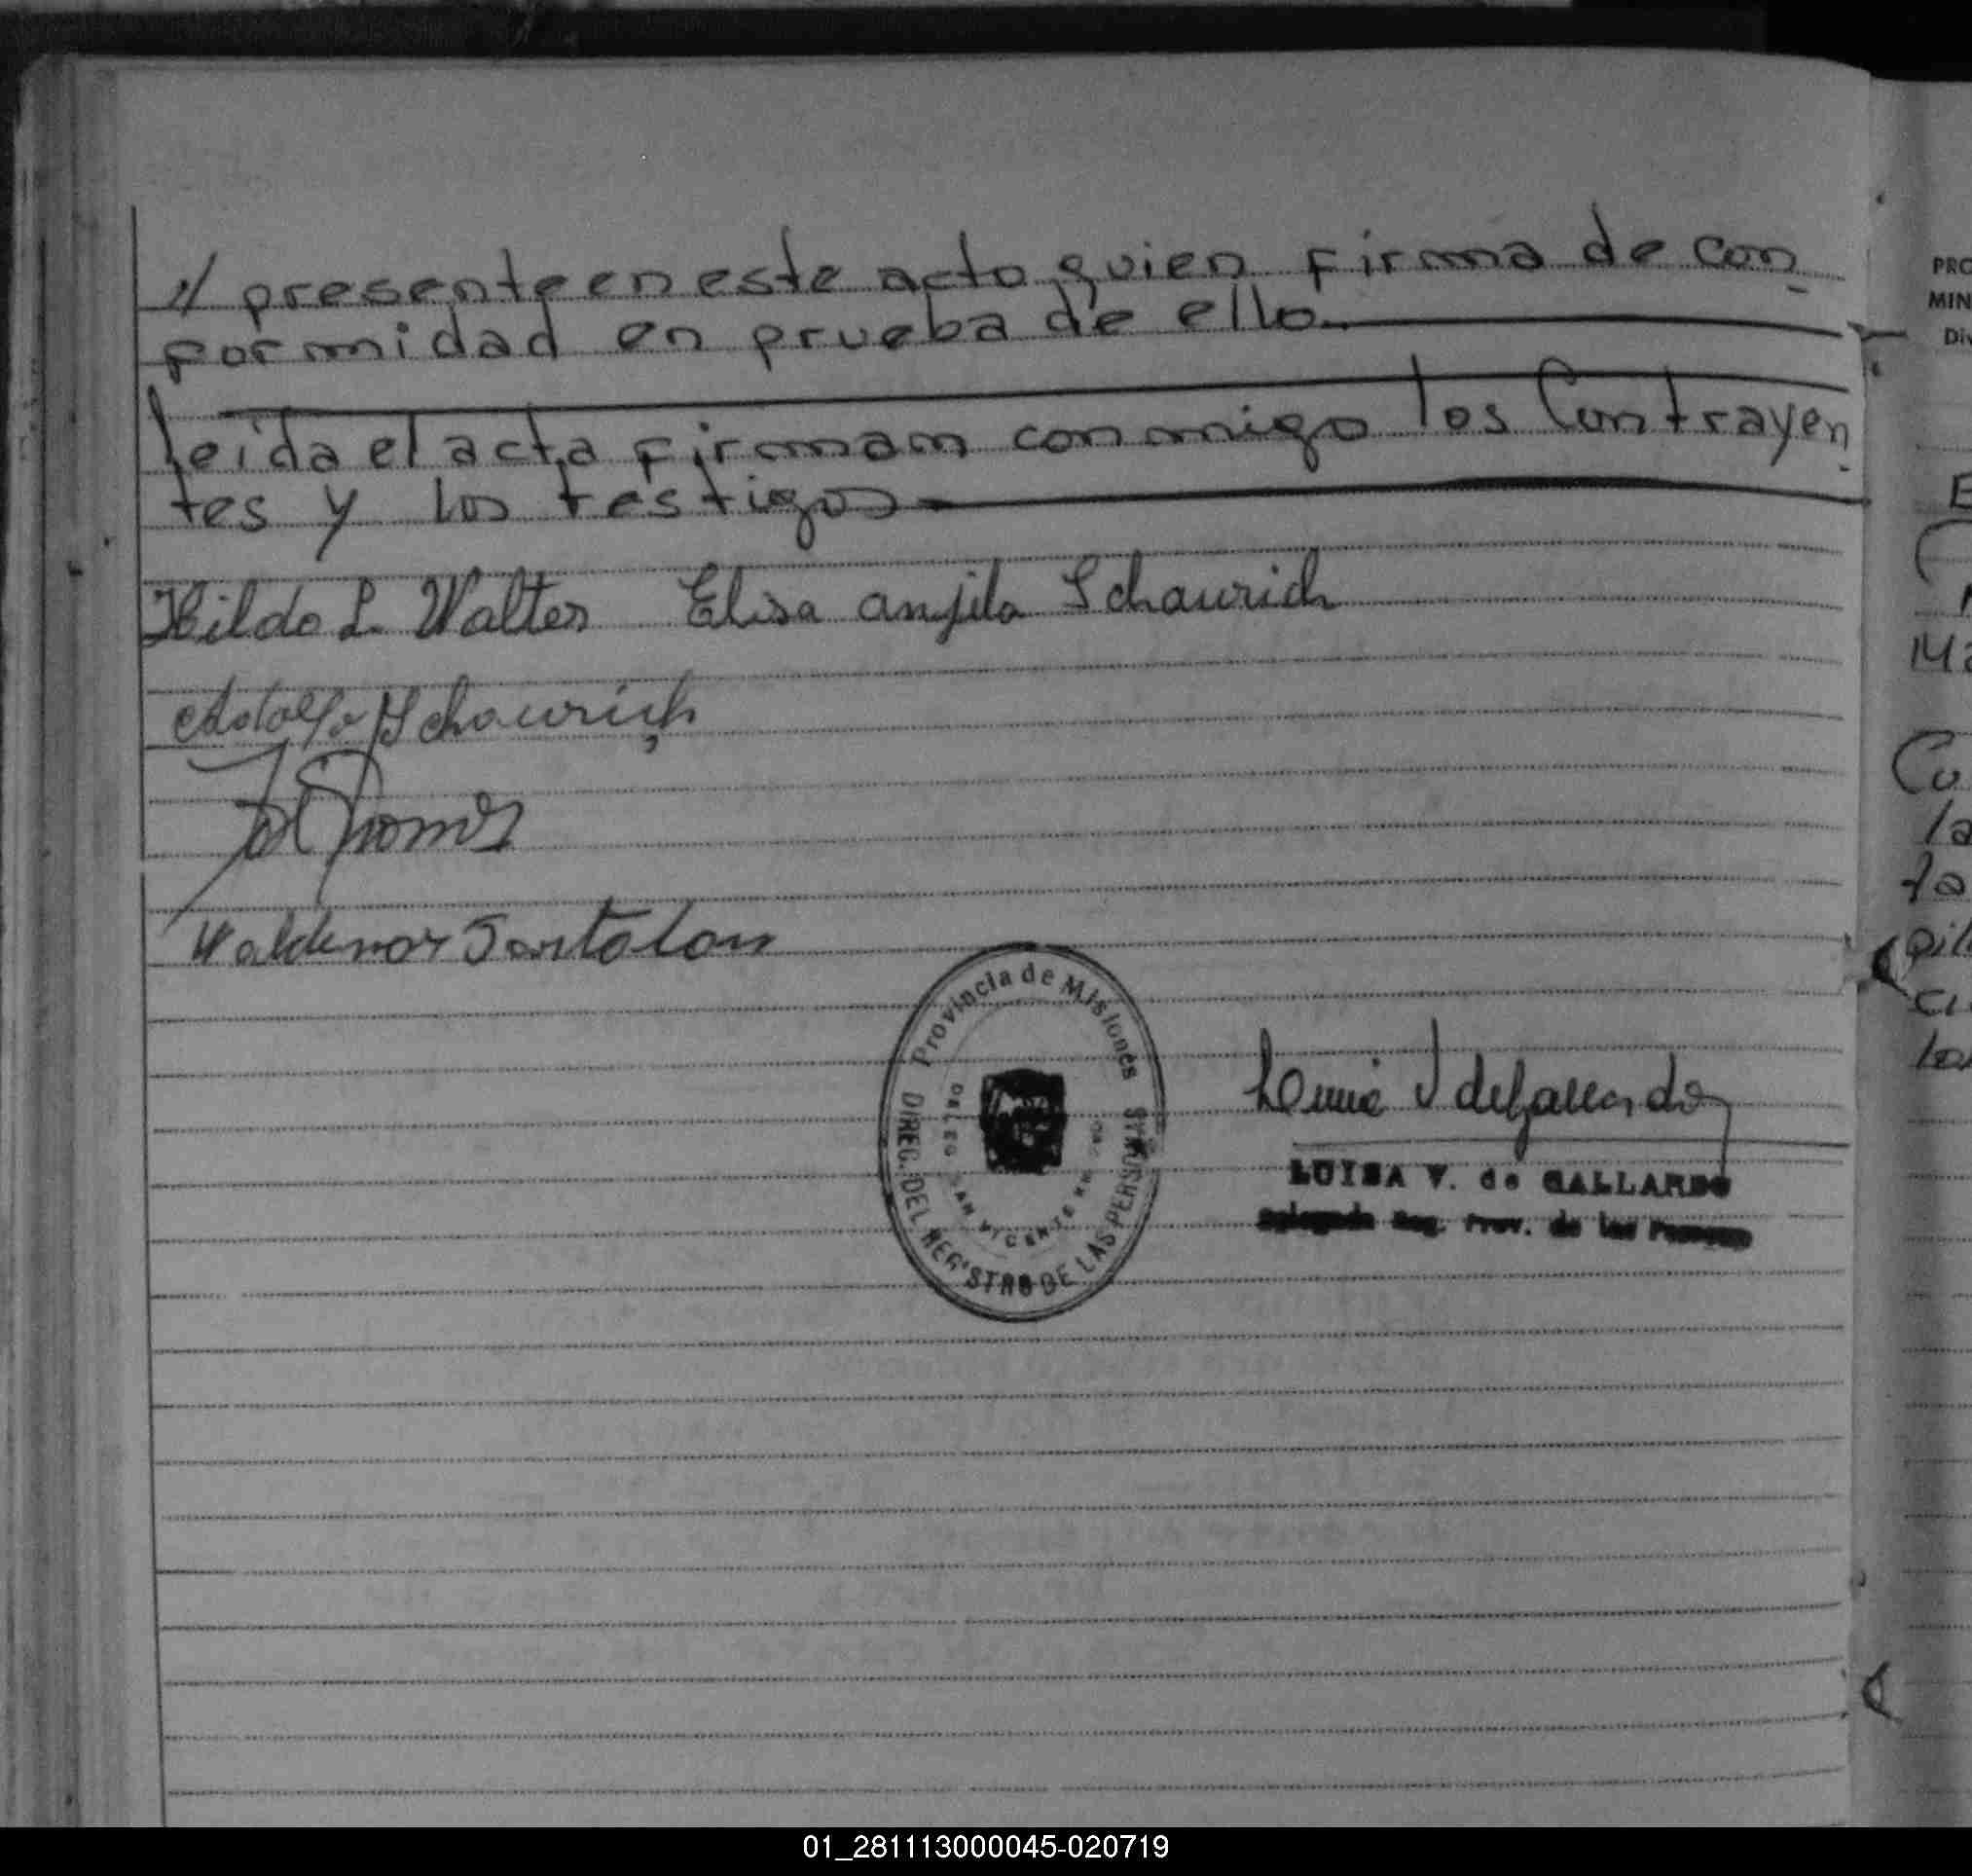 // presente en este acto quien firma de con
formidad en prueba de ello.
leida el acta firmam conmigo los Contrayen
tes y los testigos
Hildo L. Walter Elisa anjila Schaurich
Adolfo Schaurich
Waldemar
Provincia de Misiones
DIREC. DEL REGISTRO DE LAS PERSONAS
DELEG SAN VICENTE
LUISA V. de GALLARDO
Delegada Reg. Prov. de las Personas
PRO
MIN
Div
E
Co
la
fa
pil
ci
01_281113000045-020719